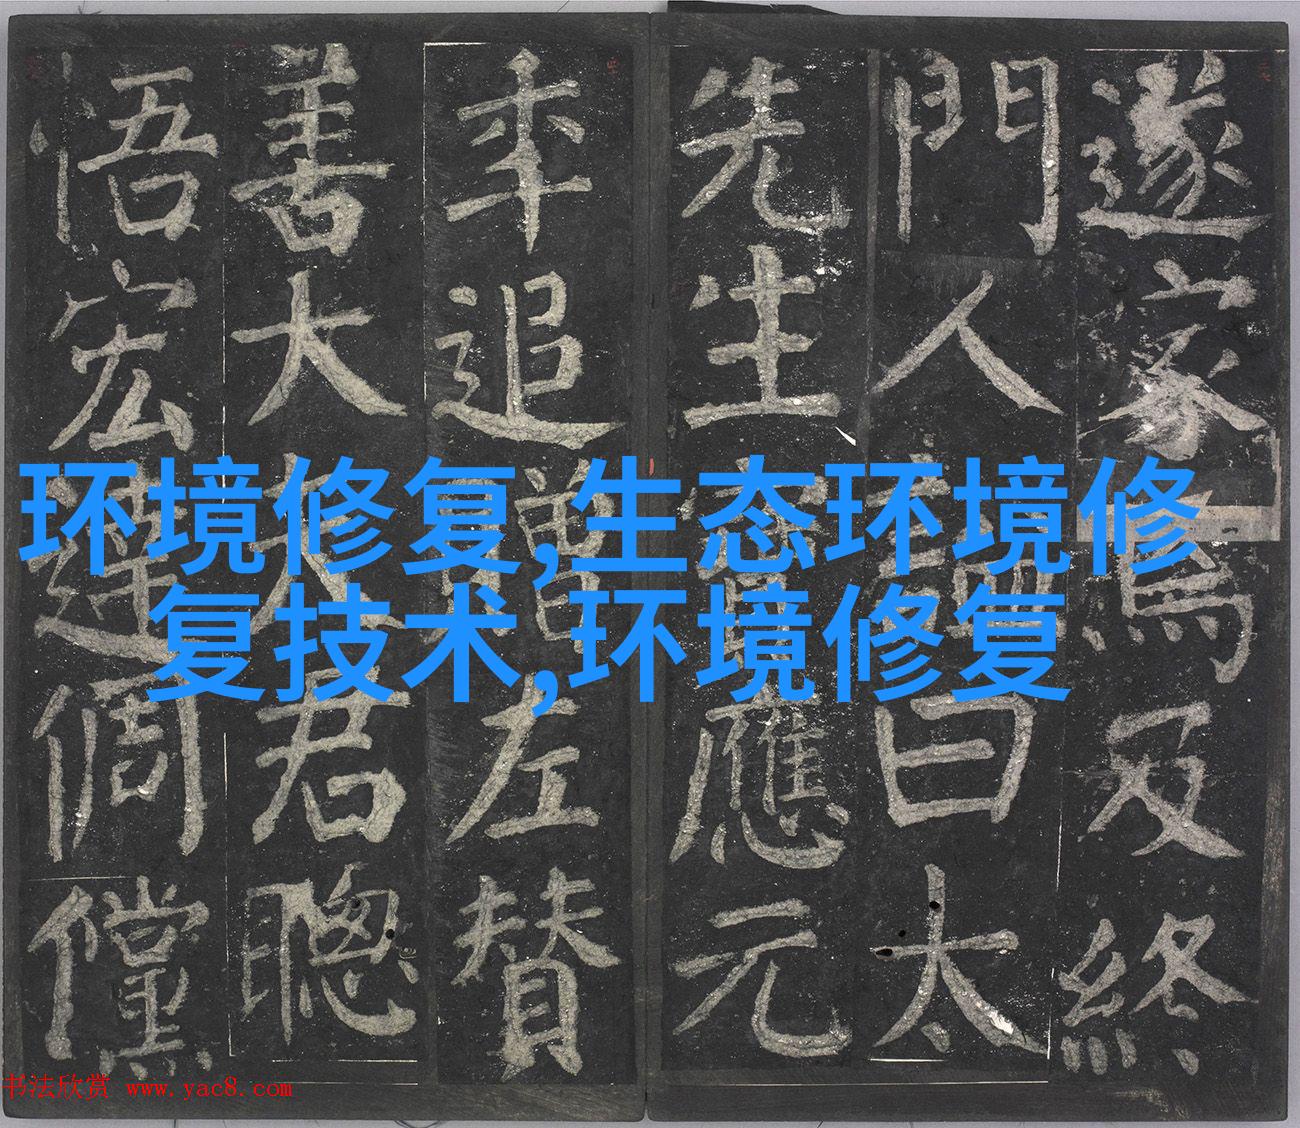 遂家焉及終
門人曰太
先生應元
年追贈左贊
善大夫君聰
悟宏達倜儻
环境修复,生态环境修
复技术,环境修复
书法欣赏 www.yac8.com